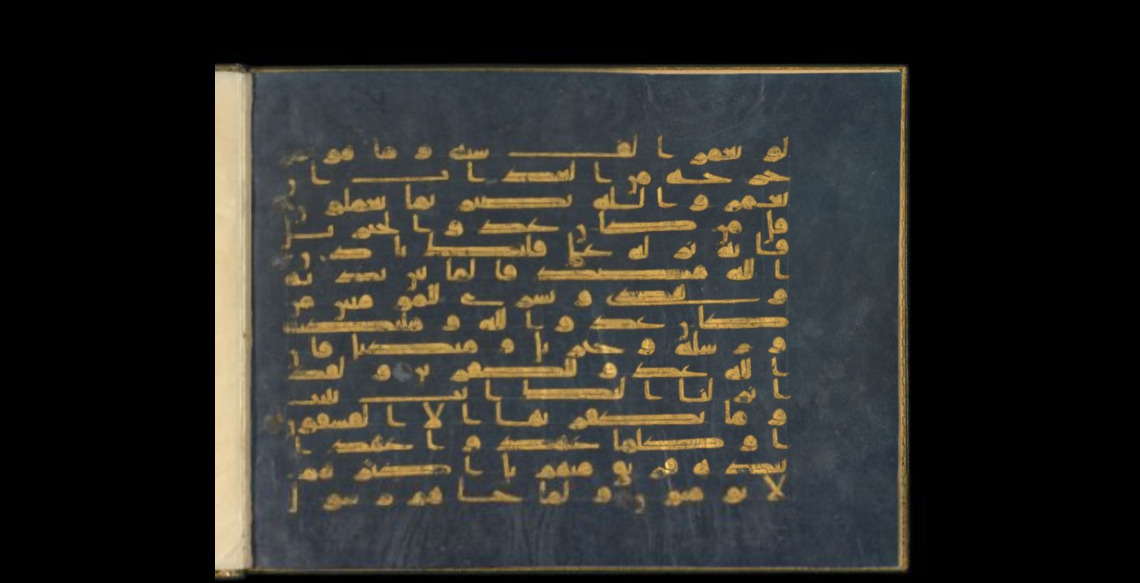 لو يعمر الف سنة وما هو بمز
حزحه من العذاب ان
يعمر والله بصير بما يعملون
قل من كان عدوا لجبريل
فانه نزله على قلبك باذن
الله مصدقا لما بين يديه
وهدى وبشرى للمومنين من
كان عدوا لله وملئكته
ورسله وجبريل وميكيل فان
الله عدو للكفرين ولقد
انزلنا اليك ايت بينت
وما يكفر بها الا الفسقون
اوكلما عهدوا عهدا
نبذه فريق منهم بل اكثرهم
لا يومنون ولما جاهم رسول